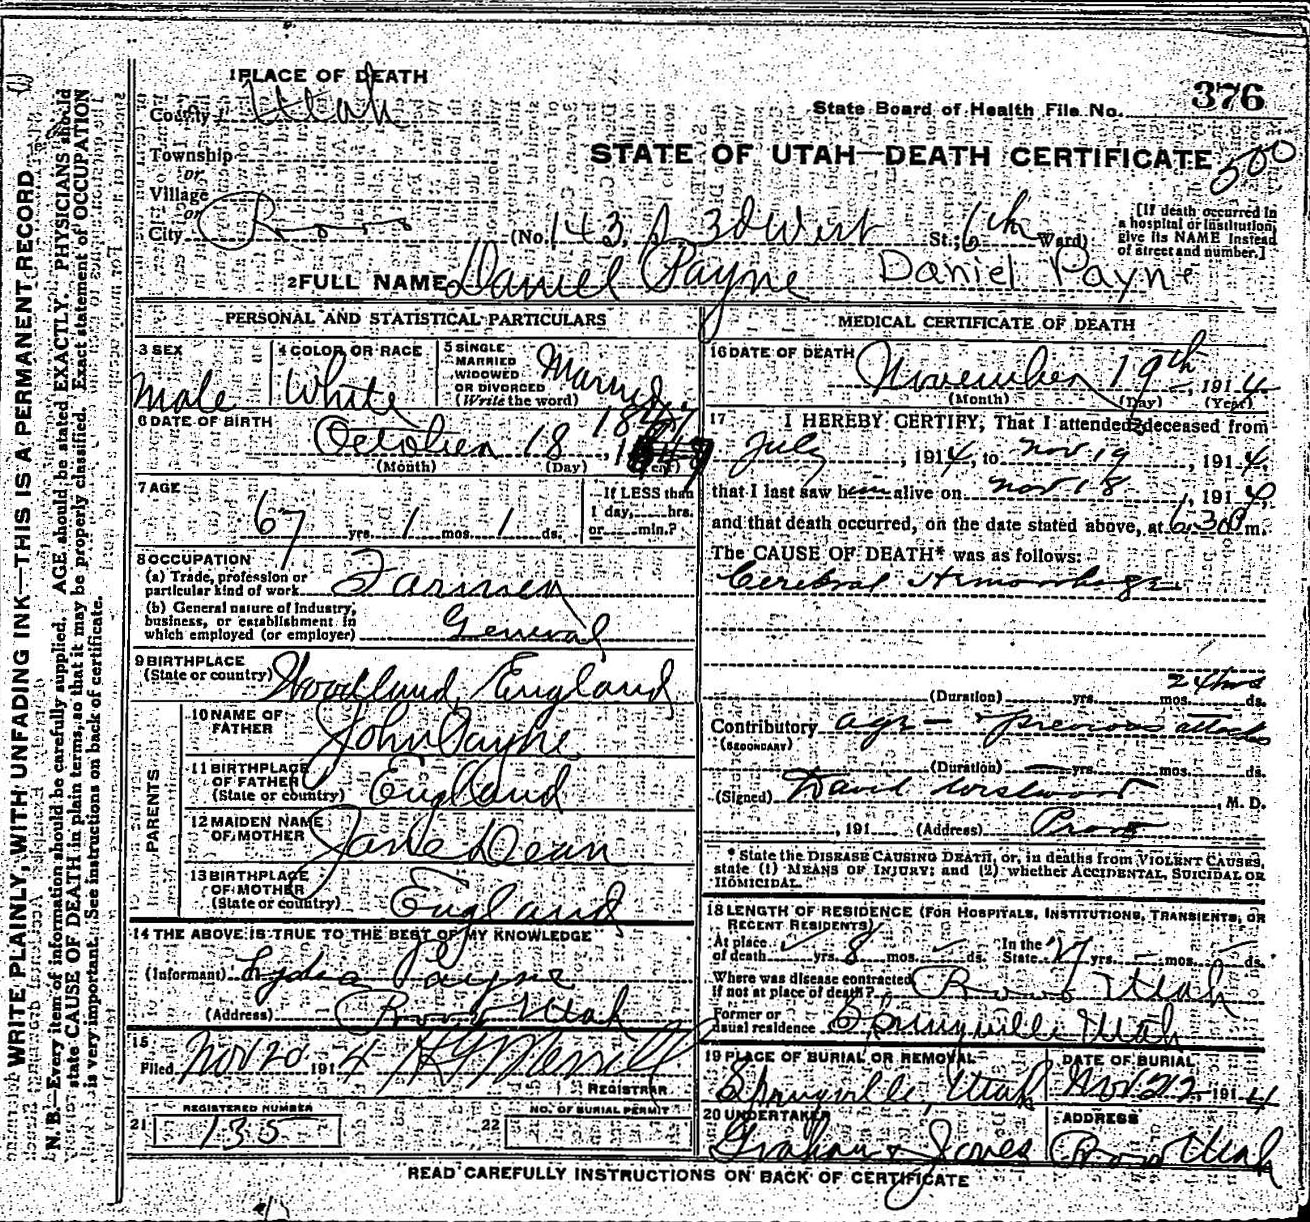 1 PLACE OF DEATH
County Utah
State Board of Health File No. 376
STATE OF UTAH—DEATH CERTIFICATE 500
Township
or
Village
or
City Provo (No. 143 S. 3d West St; 6th Ward)
[If death occurred in a hospital or institution, give its NAME instead of street and number.]
2 FULL NAME Daniel Payne Daniel Payne
PERSONAL AND STATISTICAL PARTICULARS
3 SEX
male
4 COLOR OR RACE
White
5 SINGLE
MARRIED
WIDOWED
OR DIVORCED
(Write the word)
Married
6 DATE OF BIRTH
October 18, 1847
(Month) (Day) (Year)
7 AGE
67 yrs. 1 mos. 1 ds.
If LESS than
1 day, hrs.
or min.?
8 OCCUPATION
(a) Trade, profession or
particular kind of work Farmer
(b) General nature of Industry,
business, or establishment in
which employed (or employer) General
9 BIRTHPLACE
(State or country) Woodland England
PARENTS
10 NAME OF
FATHER John Payne
11 BIRTHPLACE
OF FATHER
(State or country) England
12 MAIDEN NAME
OF MOTHER Jane Dean
13 BIRTHPLACE
OF MOTHER
(State or country) England
14 THE ABOVE IS TRUE TO THE BEST OF MY KNOWLEDGE
(Informant) Lydia Payne
(Address) Provo Utah
15
Filed Nov 20 1914 Merrill
REGISTRAR
REGISTERED NUMBER
21 135
NO. OF BURIAL PERMIT
22
MEDICAL CERTIFICATE OF DEATH
16 DATE OF DEATH
November 19th, 1914
(Month) (Day) (Year)
17 I HEREBY CERTIFY, That I attended deceased from
July, 1914, to Nov 19, 1914,
that I last saw him alive on Nov 18, 1914
and that death occurred, on the date stated above, at 6:30 P m.
The CAUSE OF DEATH* was as follows:
Cerebral Hemorrhage
24 hrs
(Duration) yrs. mos. ds.
Contributory age — previous attacks
(SECONDARY)
(Duration) yrs. mos. ds.
(Signed) David Westwood, M. D.
, 191 (Address) Provo
* State the DISEASE CAUSING DEATH, or, in deaths from VIOLENT CAUSES,
state (1) MEANS OF INJURY; and (2) whether ACCIDENTAL, SUICIDAL OR
HOMICIDAL.
18 LENGTH OF RESIDENCE (FOR HOSPITALS, INSTITUTIONS, TRANSIENTS, OR
RECENT RESIDENTS)
At place
of death yrs. 8 mos. ds. In the
State yrs. mos. ds.
Where was disease contracted
if not at place of death? Provo Utah
Former or
usual residence Springville Utah
19 PLACE OF BURIAL OR REMOVAL
Springville, Utah
DATE OF BURIAL
Nov 22, 1914
20 UNDERTAKER
Graham & Jones
ADDRESS
Provo Utah
READ CAREFULLY INSTRUCTIONS ON BACK OF CERTIFICATE
WRITE PLAINLY, WITH UNFADING INK—THIS IS A PERMANENT RECORD
N. B.—Every item of information should be carefully supplied. AGE should be stated EXACTLY. PHYSICIANS should
state CAUSE OF DEATH in plain terms, so that it may be properly classified. Exact statement of OCCUPATION
is very important. See instructions on back of certificate.